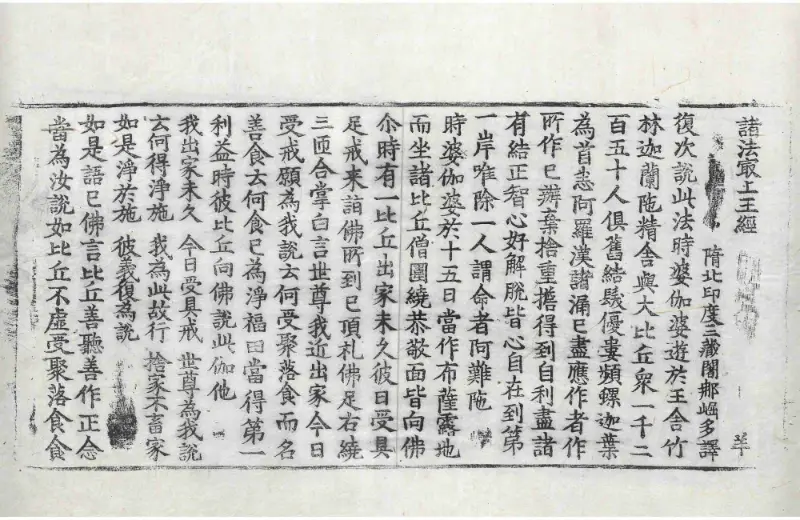 諸法最上王經
隋北印度三藏闍那崛多譯
復次說此法時婆伽婆遊於王舍竹
林迦蘭陁精舍與大比丘衆一千二
百五十人俱舊結髮優婁頻螺迦葉
為首悉阿羅漢諸涌已盡應作者作
所作已辦棄捨重擔得到自利盡諸
有結正智心好解脫皆心自在到第
一岸唯除一人謂命者阿難陁
時婆伽婆於十五日當作布薩露地
而坐諸比丘僧圍繞恭敬面皆向佛
尒時有一比丘出家未久彼日受具
足戒来詣佛所到已頂礼佛足右繞
三匝合掌白言世尊我近出家今日
受戒願為我說云何受聚落食而名
善食云何食已為淨福田當得第一
利益時彼比丘向佛說此伽他
我出家未久 今日受具戒 世尊為我說
云何得淨施 我為此故行 捨家不畜家
如是淨於施 彼義復為說
如是語已佛言比丘善聽善作正念
當為汝說如比丘不虛受聚落食食